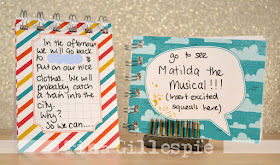 In the afternoon
we will go back
to
put on our nice
clothes. We will
probably catch
a train into the
city.
Why?
So we can....
go to see
Matilda the
Musical!!!
(insert excited
squeals here)
Gillespie